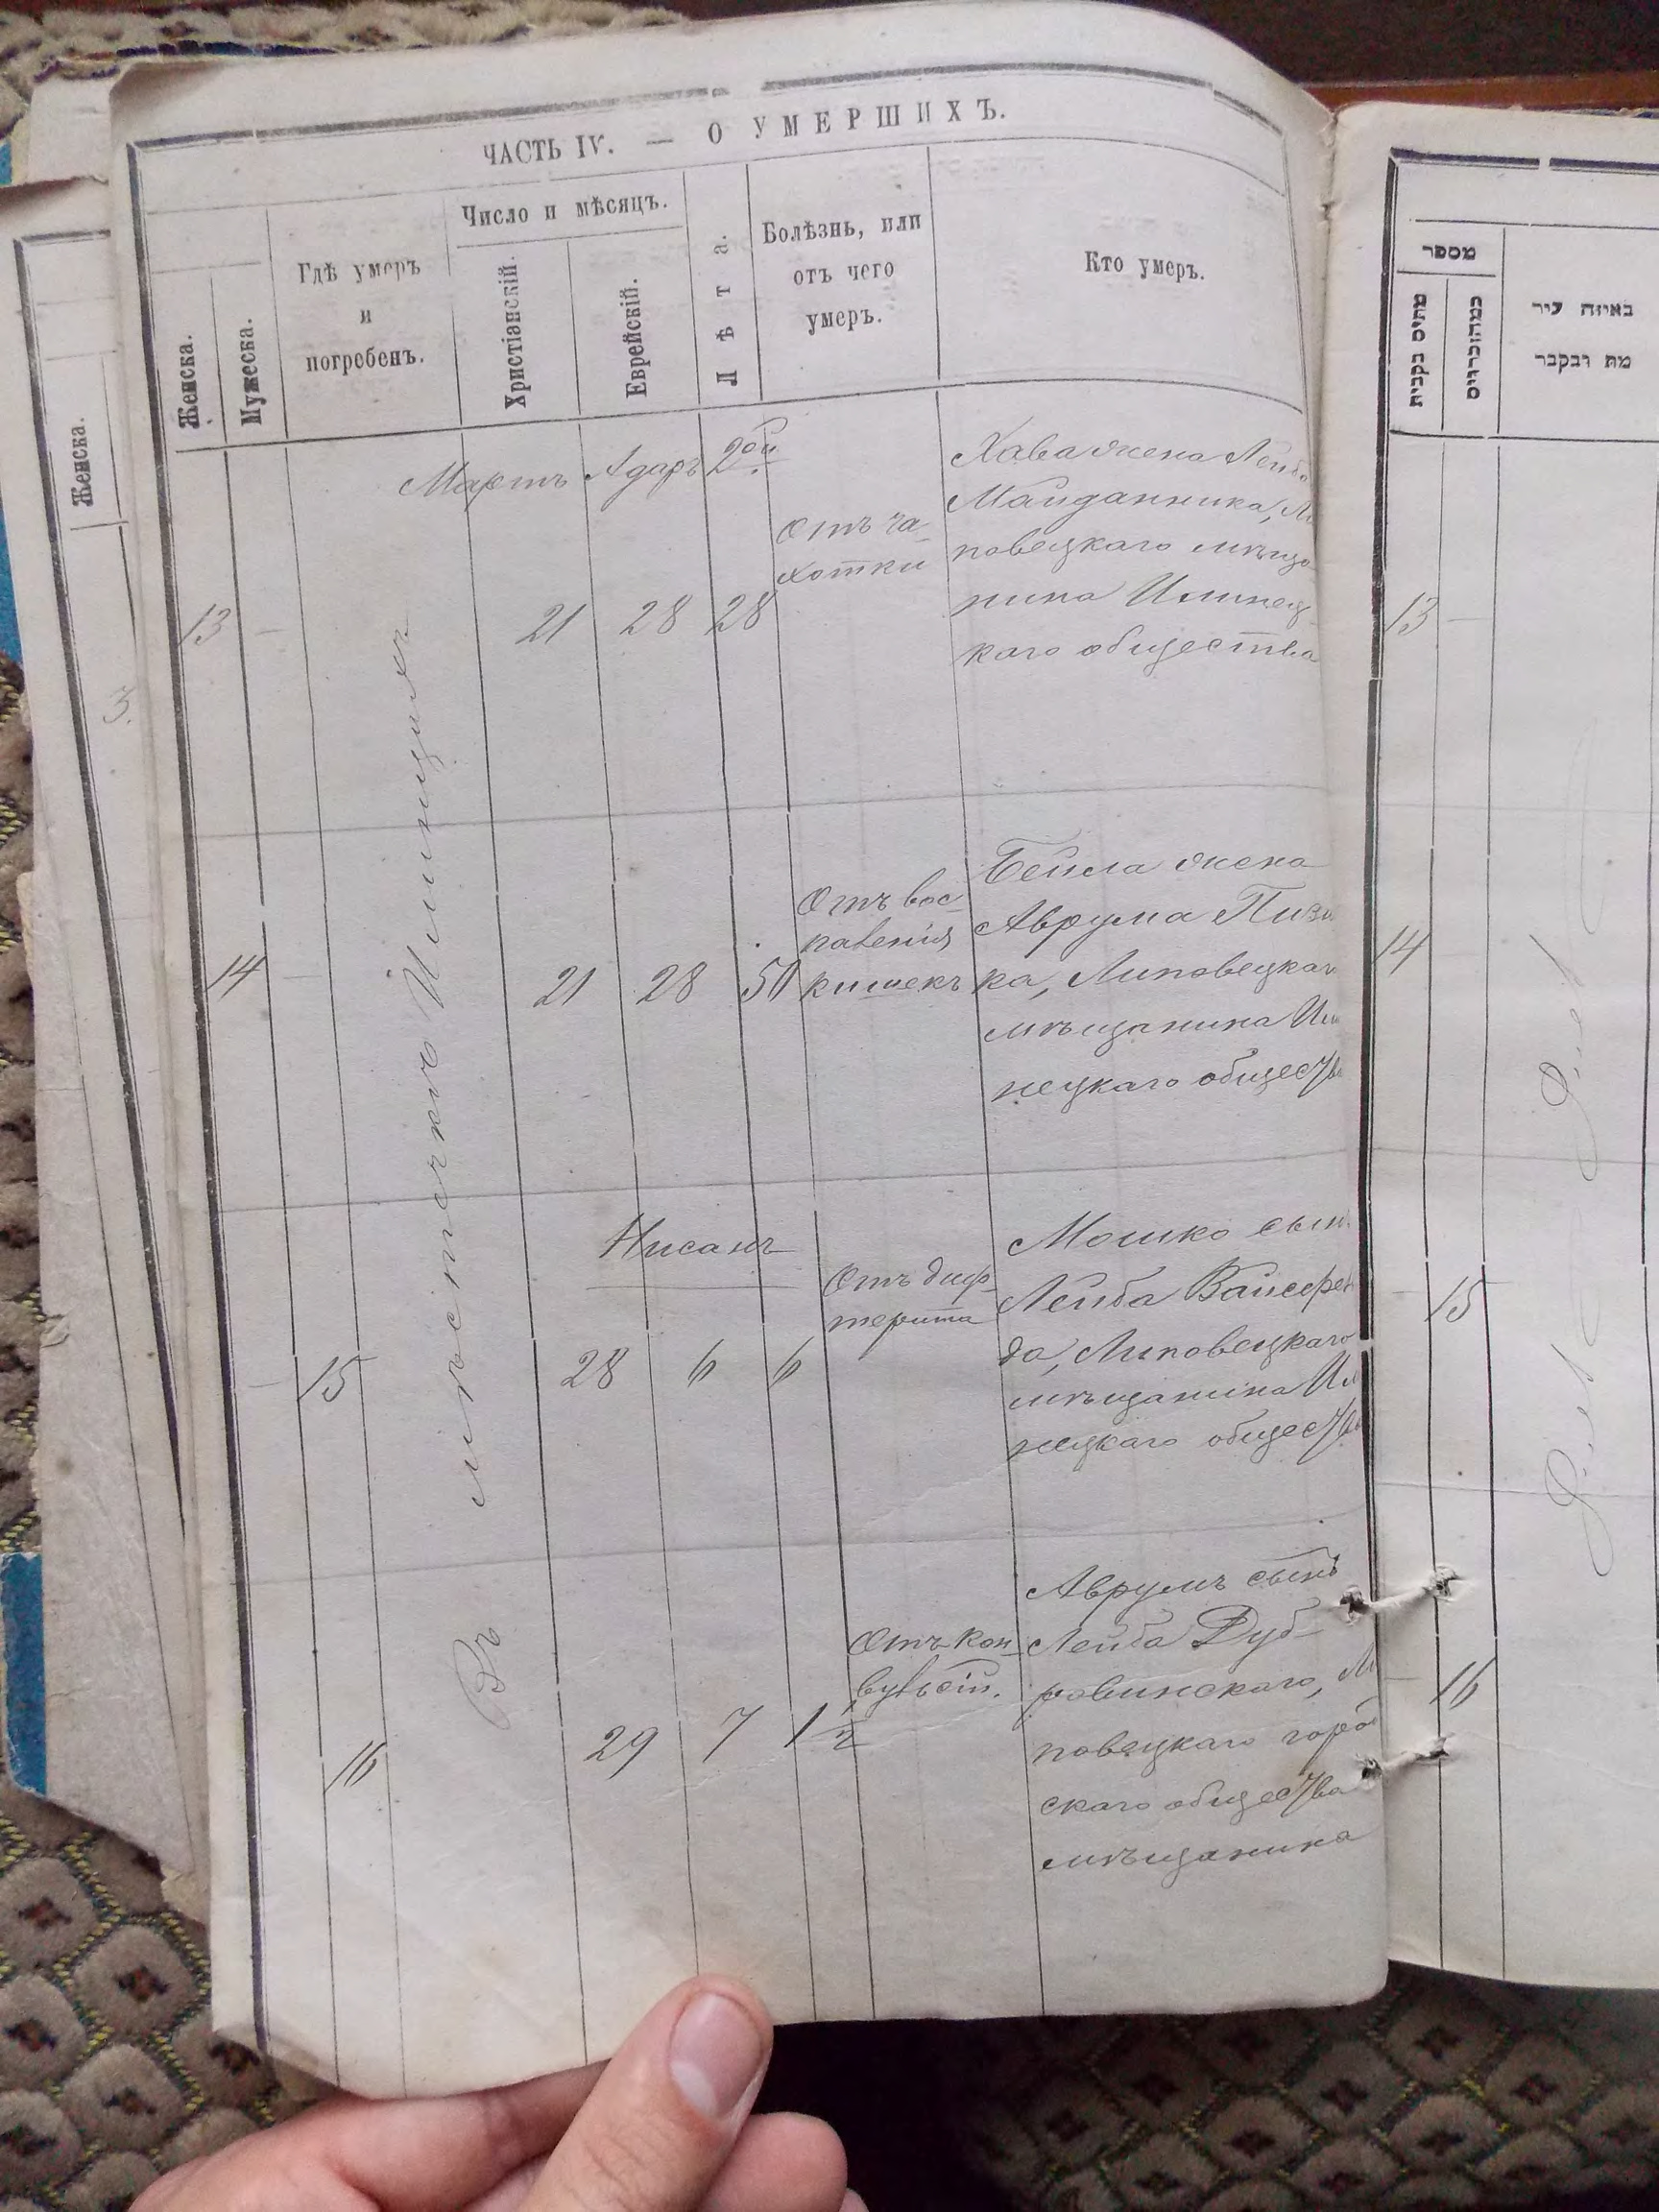 ЧАСТЬ IV. — О УМЕРШИХЪ.
Женска.
Мужеска.
Гдѣ умеръ
и
погребенъ.
Число и мѣсяцъ.
Христіанскій.
Еврейскій.
Лѣта.
Болѣзнь, или
отъ чего
умеръ.
Кто умеръ.
Мартъ Адаръ 2ой
Въ мѣстечкѣ Илинцахъ
13 — 21 28 28
Отъ ча-
хотки
Хава жена Лейбы
Майданника, Ли
повецкаго мѣща
нина Илинец
каго общества
14 — 21 28 50
Отъ вос-
паленія
кишекъ
Бейла жена
Аврума Пизи
ка, Липовецкаго
мѣщанина Или
нецкаго общества
Нисанъ
— 15 28 6 6
Отъ диф-
терита
Мошко сынъ
Лейба Вайсфель
да, Липовецкаго
мѣщанина Или
нецкаго общества
16 29 7 1½
Отъ кон-
вульсій.
Аврумъ сынъ
Лейба Дуб-
ровинскаго, Ли
повецкаго город
скаго общества
мѣщанина
Женска.
3.
מספר
מתים נקבות
כמהזכרים
באיזה עיר
מת ונקבר
13 —
14
— 15
— 16